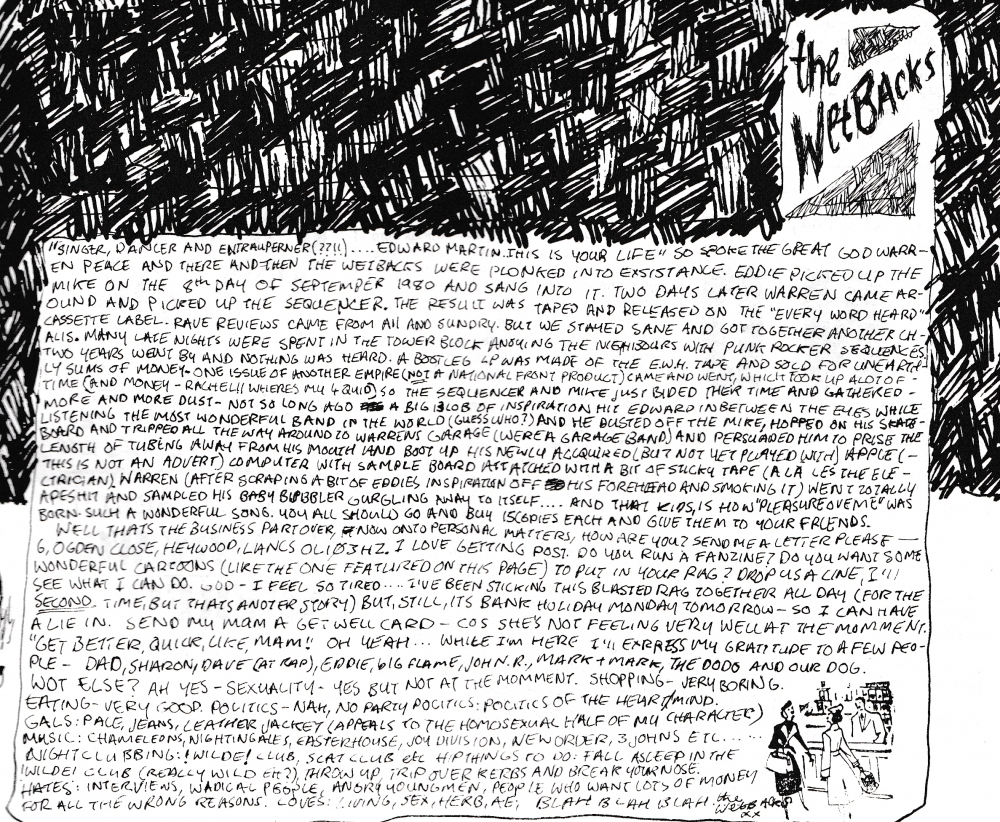 the
WetBAcks
"SINGER, DANCER AND ENTRAUPERNER(??!!)....EDWARD MARTIN. THIS IS YOUR LIFE" SO SPOKE THE GREAT GOD WARR-
EN PEACE AND THERE AND THEN THE WETBACKS WERE PLONKED INTO EXSISTANCE. EDDIE PICKED UP THE
MIKE ON THE 8th DAY OF SEPTEMPER 1980 AND SANG INTO IT. TWO DAYS LATER WARREN CAME AR-
OUND AND PICKED UP THE SEQUENCER. THE RESULT WAS TAPED AND RELEASED ON THE "EVERY WORD HEARD"
CASSETTE LABEL. RAVE REVIEWS CAME FROM All AND SUNDRY. BUT WE STAYED SANE AND GOT TOGETHER ANOTHER CH-
ALIS. MANY LATE NIGHTS WERE SPENT IN THE TOWER BLOCK ANOYING THE NEIHBOURS WITH PUNK ROCKER SEQUENCES.
TWO YEARS WENT BY AND NOTHING WAS HEARD. A BOOTLEG LP WAS MADE OF THE E.W.H. TAPE AND SOLD FOR UNEARTH-
LY SUMS OF MONEY- ONE ISSUE OF ANOTHER EMPIRE (NOT A NATIONAL FRONT PRODUCT) CAME AND WENT, WHICH TOOK UP A LOT OF -
TIME (AND MONEY - RACHEL!! WHERES MY 4 QUID) SO THE SEQUENCER AND MIKE JUST BIDED THER TIME AND GATHERED -
MORE AND MORE DUST- NOT SO LONG AGO A BIG BLOB OF INSPIRATION HIT EDWARD INBETWEEN THE EYES WHILE
LISTENING THE MOST WONDERFUL BAND IN THE WORLD (GUESS WHO?) AND HE DUSTED OFF THE MIKE, HOPPED ON HIS SKATE-
BOARD AND TRIPPED ALL THE WAY AROUND TO WARRENS GARAGE (WERE A GARAGE BAND) AND PERSUADED HIM TO PRISE THE
LENGTH OF TUBING AWAY FROM HIS MOUTH AND BOOT UP HIS NEWLY ACCQUIRED (BUT NOT YET PLAYED WITH) APPLE (-
THIS IS NOT AN ADVERT) COMPUTER WITH SAMPLE BOARD ATTATCHED WITH A BIT OF STICKY TAPE (A LA LES THE ELE-
CTRICIAN). WARREN (AFTER SCRAPING A BIT OF EDDIES INSPIRATION OFF HIS FOREHEAD AND SMOKING IT) WENT TOTALLY
APESHIT AND SAMPLED HIS BABY BUBBLER GURGLING AWAY TO ITSELF.... AND THAT KIDS, IS HOW "PLEASURE OVE ME" WAS
BORN. SUCH A WONDERFUL SONG. YOU ALL SHOULD GO AND BUY 15 COPIES EACH AND GIVE THEM TO YOUR FRIENDS.
WELL THATS THE BUSINESS PART OVER NOW ONTO PERSONAL MATTERS, HOW ARE YOU? SEND ME A LETTER PLEASE —
6, OGDEN CLOSE, HEYWOOD, LANCS OL1Ø3HZ. I LOVE GETTING POST. DO YOU RUN A FANZINE? DO YOU WANT SOME
WONDERFUL CARTOONS (LIKE THE ONE FEATURED ON THIS PAGE) TO PUT IN YOUR RAG? DROP US A LINE, I'll
SEE WHAT I CAN DO. GOD - I FEEL SO TIRED.... I'VE BEEN STICKING THIS BLASTED RAG TOGETHER ALL DAY (FOR THE
SECOND TIME, BUT THATS ANOTER STORY) BUT, STILL, ITS BANK HOLIDAY MONDAY TOMORROW - SO I CAN HAVE
A LIE IN. SEND MY MAM A GET WELL CARD - COS SHE'S NOT FEELING VERY WELL AT THE MOMMENT.
"GET BETTER, QUICK, LIKE, MAM!" OH YEAH... WHILE I'M HERE I'll EXPRESS MY GRATITUDE TO A FEW PEO-
PLE - DAD, SHARON, DAVE (AT RAP), EDDIE, BIG FLAME, JOHN.R., MARK + MARK, THE DODO AND OUR DOG.
WOT ELSE? AH YES - SEXUALITY - YES BUT NOT AT THE MOMMENT. SHOPPING - VERY BORING.
EATING - VERY GOOD. POLITICS - NAH, NO PARTY POLITICS: POLITICS OF THE HEART/MIND.
GALS: PALE, JEANS, LEATHER JACKET (APPEALS TO THE HOMOSEXUAL HALF OF MY CHARACTER)
MUSIC: CHAMELEONS, NIGHTINGALES, EASTERHOUSE, JOY DIVISION, NEW ORDER, 3 JOHNS ETC......
NIGHTCLUBBING: !WILDE! CLUB, SCAT CLUB etc HIP THINGS TO DO: FALL ASLEEP IN THE
!WILDE! CLUB (REALLY WILD EH?), THROW UP, TRIP OVER KERBS AND BREAK YOUR NOSE.
HATES: INTERVIEWS, WADICAL PEOPLE, ANGRY YOUNG MEN, PEOPLE WHO WANT LOTS OF MONEY
FOR ALL THE WRONG REASONS. LOVES: LIVING, SEX, HERB, AE, BLAH BLAH BLAH. the
WetBAcks
xx